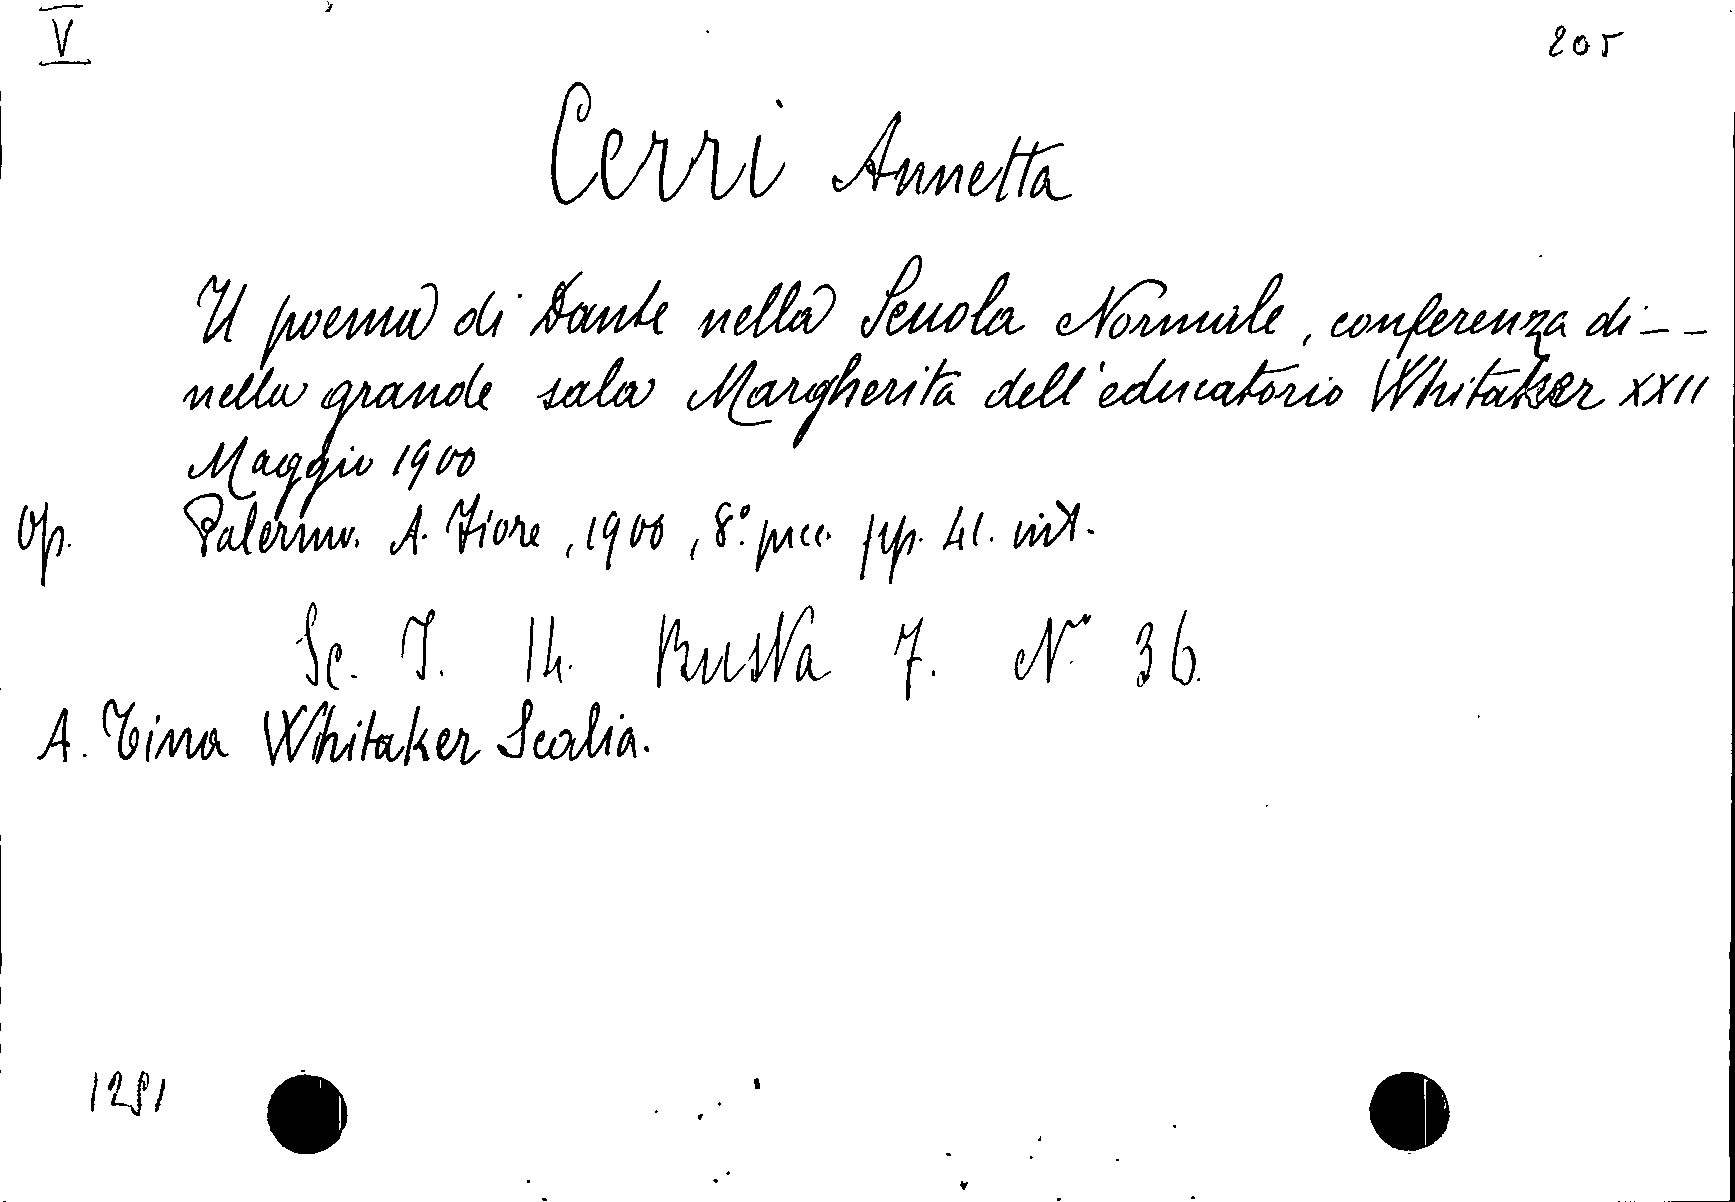 V
205
Cerri Annetta
Il poema di Dante nella Scuola Normale, conferenza di - -
nella grande sala Margherita dell'educatorio Whitaker XXII
Maggio 1900
Op. Palermo. A. Fiore, 1900, 8.° picc. pp. 41. int.
Sc. I. 14. Busta 7. N.° 36.
A. Tina Whitaker Scalia.